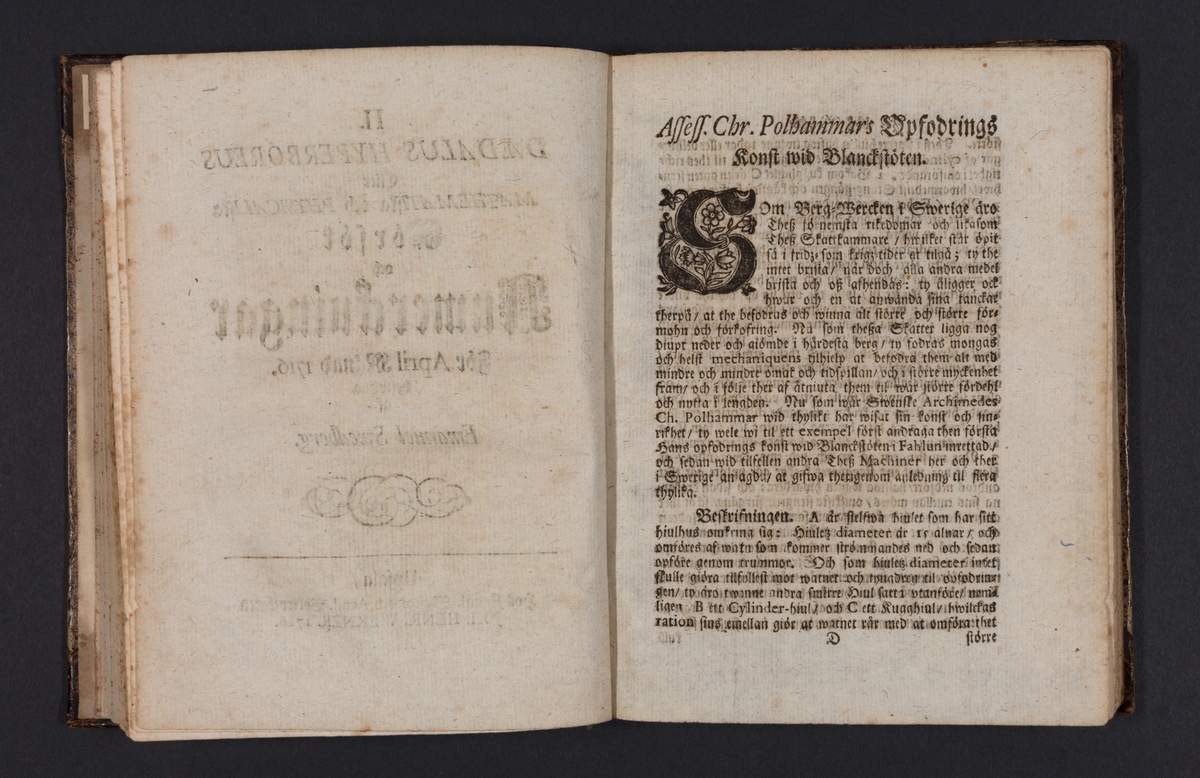 II.
DÆDALUS HYPERBOREUS
eller
MATHEMATiska och PHYSICALiska
Försök
och
Anmerckningar
För April Månad 1716.
af
Emanuel Swedberg.
Upsala/
JOH. HENR. WERNER. 1716.
Assess. Chr. Polhammars Opfodrings
Konst wid Blanckstöten.
SOm Berg-Wercken i Swerige äro
Theß förnemsta rikedomar och likasom
Theß Skattkammare / hwilket står öpit
så i fridz- som krigz tider at tilgå; ty the
intet brista / när doch alla andra medel
brista och oß afhendas: ty åligger ock
hwar och en at anwända sina tanckar
therpå / at the befodras och winna alt större och större för-
mohn och förkofring. Nu som theßa Skatter ligga nog
diupt neder och giömde i hårdesta berg / ty fodras mongas
och helst mechaniquens tilhielp at befodra them alt med
mindre och mindre omak och tidspillan / och i större myckenhet
fram / och i följe ther af åtniuta them til wår större fördehl
och nytta i lengden. Nu som wår Swenske Archimedes
Ch. Polhammar wid thylikt har wisat sin konst och sin-
rikhet / ty wele wi til ett exempel först andraga then första
Hans opfodrings konst wid Blanckstöten i Fahlun inrettad /
och sedan wid tilfellen andra Theß Machiner her och ther
i Swerige anlagda / at gifwa therigenom anledning til flera
thylika.
Beskrifningen. A är sielfwa hiulet som har sitt
hiulhus omkring sig: Hiuletz diameter är 15 alnar / och
omföres af watn som kommer strömmandes ned och sedan
opföre genom trummor. Och som hiuletz diameter intet
skulle giöra tilfyllest mot watnet och tyngdren til opfodrin-
gen / ty äro twenne andra smärre Hiul satta utanföre / nem-
ligen B ett Cylinder-hiul / och C ett Kugghiul / hwilckas
ration sins emellan giör at watnet rår med at omföra thet
D
större